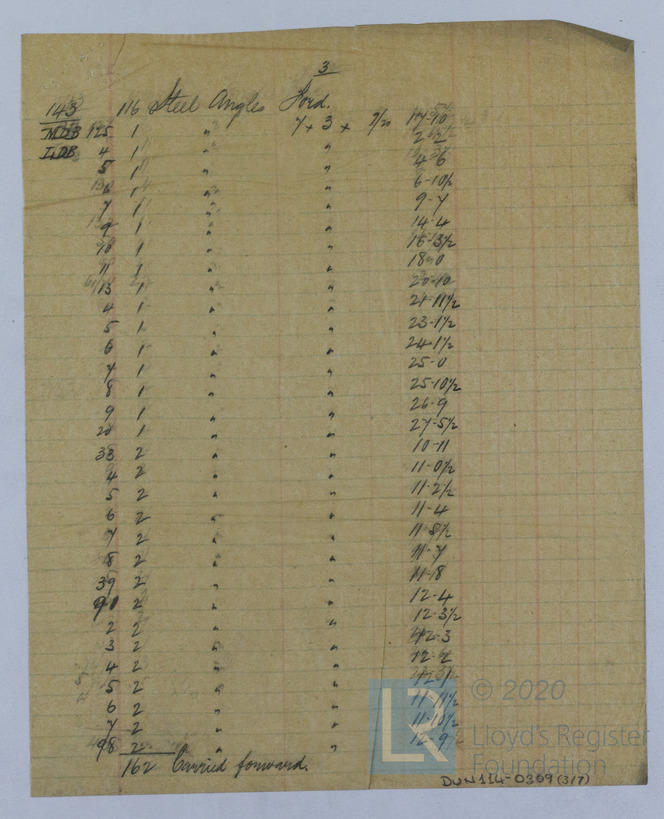 3
143 116 Steel Angles Ford.
MDB 125 1 " 7 x 3 x 7/20 17-10
LDB 4 1 " " 2-2
5 1 " " 4-6
6 1 " " 6-10½
7 1 " " 9-7
9 1 " " 14-4
10 1 " " 16-3½
11 1 " " 18-0
13 1 " " 20-10
4 1 " " 21-11½
5 1 " " 23-1½
6 1 " " 24-1½
7 1 " " 25-0
8 1 " " 25-10½
9 1 " " 26-9
20 1 " " 27-5½
33 2 " " 10-11
4 2 " " 11-0½
5 2 " " 11-2½
6 2 " " 11-4
7 2 " " 11-8½
8 2 " " 11-7
39 2 " " 11-8
90 2 " " 12-4
2 2 " " 12-3½
3 2 " 12-3
4 2 " " 12-2
5 2 " " 12-1
6 2 " " 11-11½
7 2 " " 11-10½
98 2 " " 12-9
162 Carried forward.
LR © 2020
Lloyd's Register
Foundation
DUN114-0309(3/7)